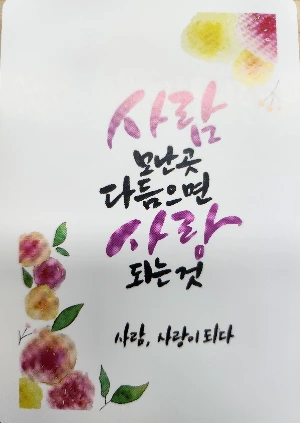 사람
모난곳
다듬으면
사랑
되는것
사람, 사랑이 되다